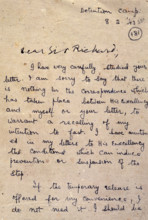 Detention Camp
8 2 43
Dear Sir Richard,
"I have very carefully studied your
letter. I am sorry to say that there
is nothing in the correspondence which
has taken place between His Excellency
and myself or your letter, to
warrant a recalling of my
intention to fast. I have
in my letters to His Excellency
the conditions which can induce
prevention or suspension of the
step
If the temporary release is
offered for my convenience, I
do not need it. I should be